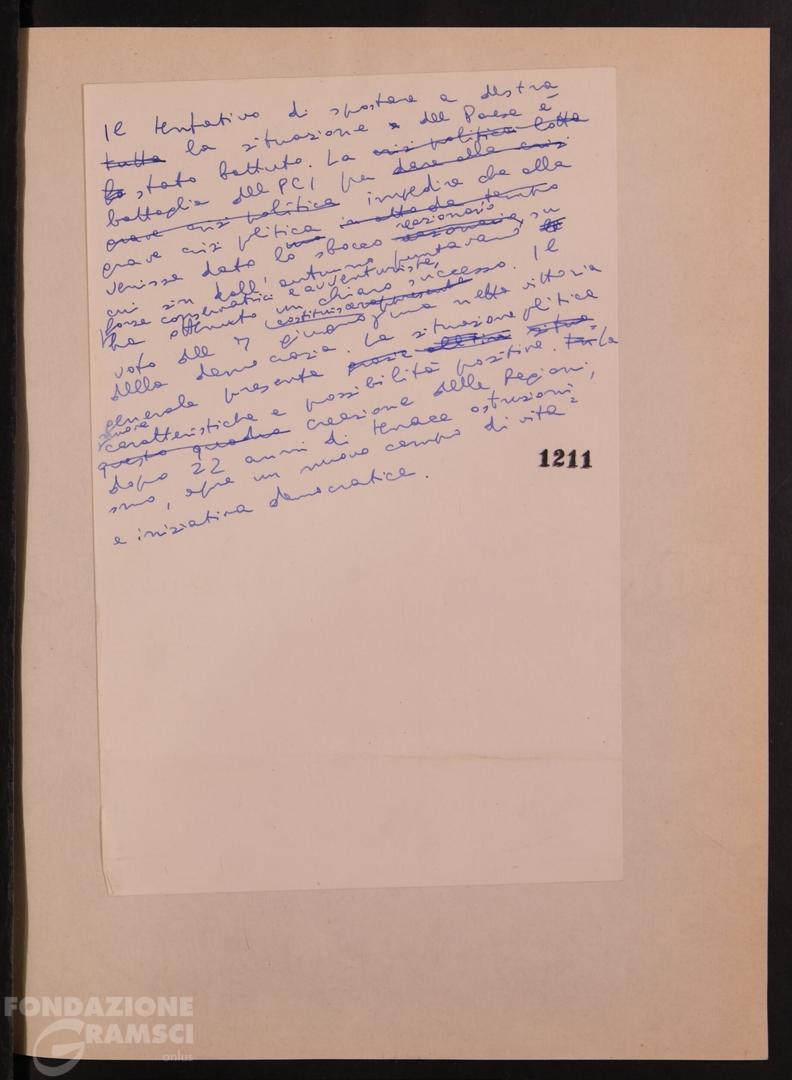 Il tentativo di spostare a destra
tutta la situazione del Paese è
stato battuto. La crisi politica lotta
battaglia del PCI per dare alla crisi
grave crisi politica impedire che alla
grave crisi plitica
venisse dato lo sbocco reazionario su
cui sin dall'autunno puntavano le
forze conservatrici e avventuriste,
ha ottenuto un chiaro successo. Il
voto del 7 giugno una netta vittoria
della democrazia. La situazione plitica
generale presenta
nuove
caratteristiche e possibilità positive. La
questo quadro creazione delle Regioni,
dopo 22 anni di tenace ostruzioni=
smo, apre un nuovo campo di vita
e iniziativa democratica.
1211
FONDAZIONE
GRAMSCI
onlus